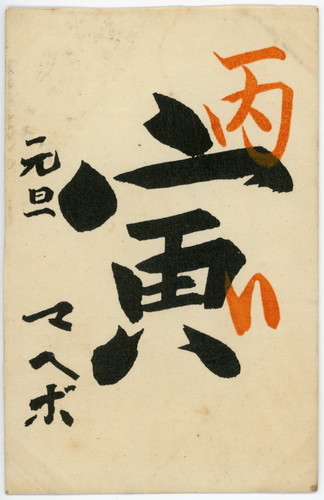 丙
い
寅
元旦
マヘボ